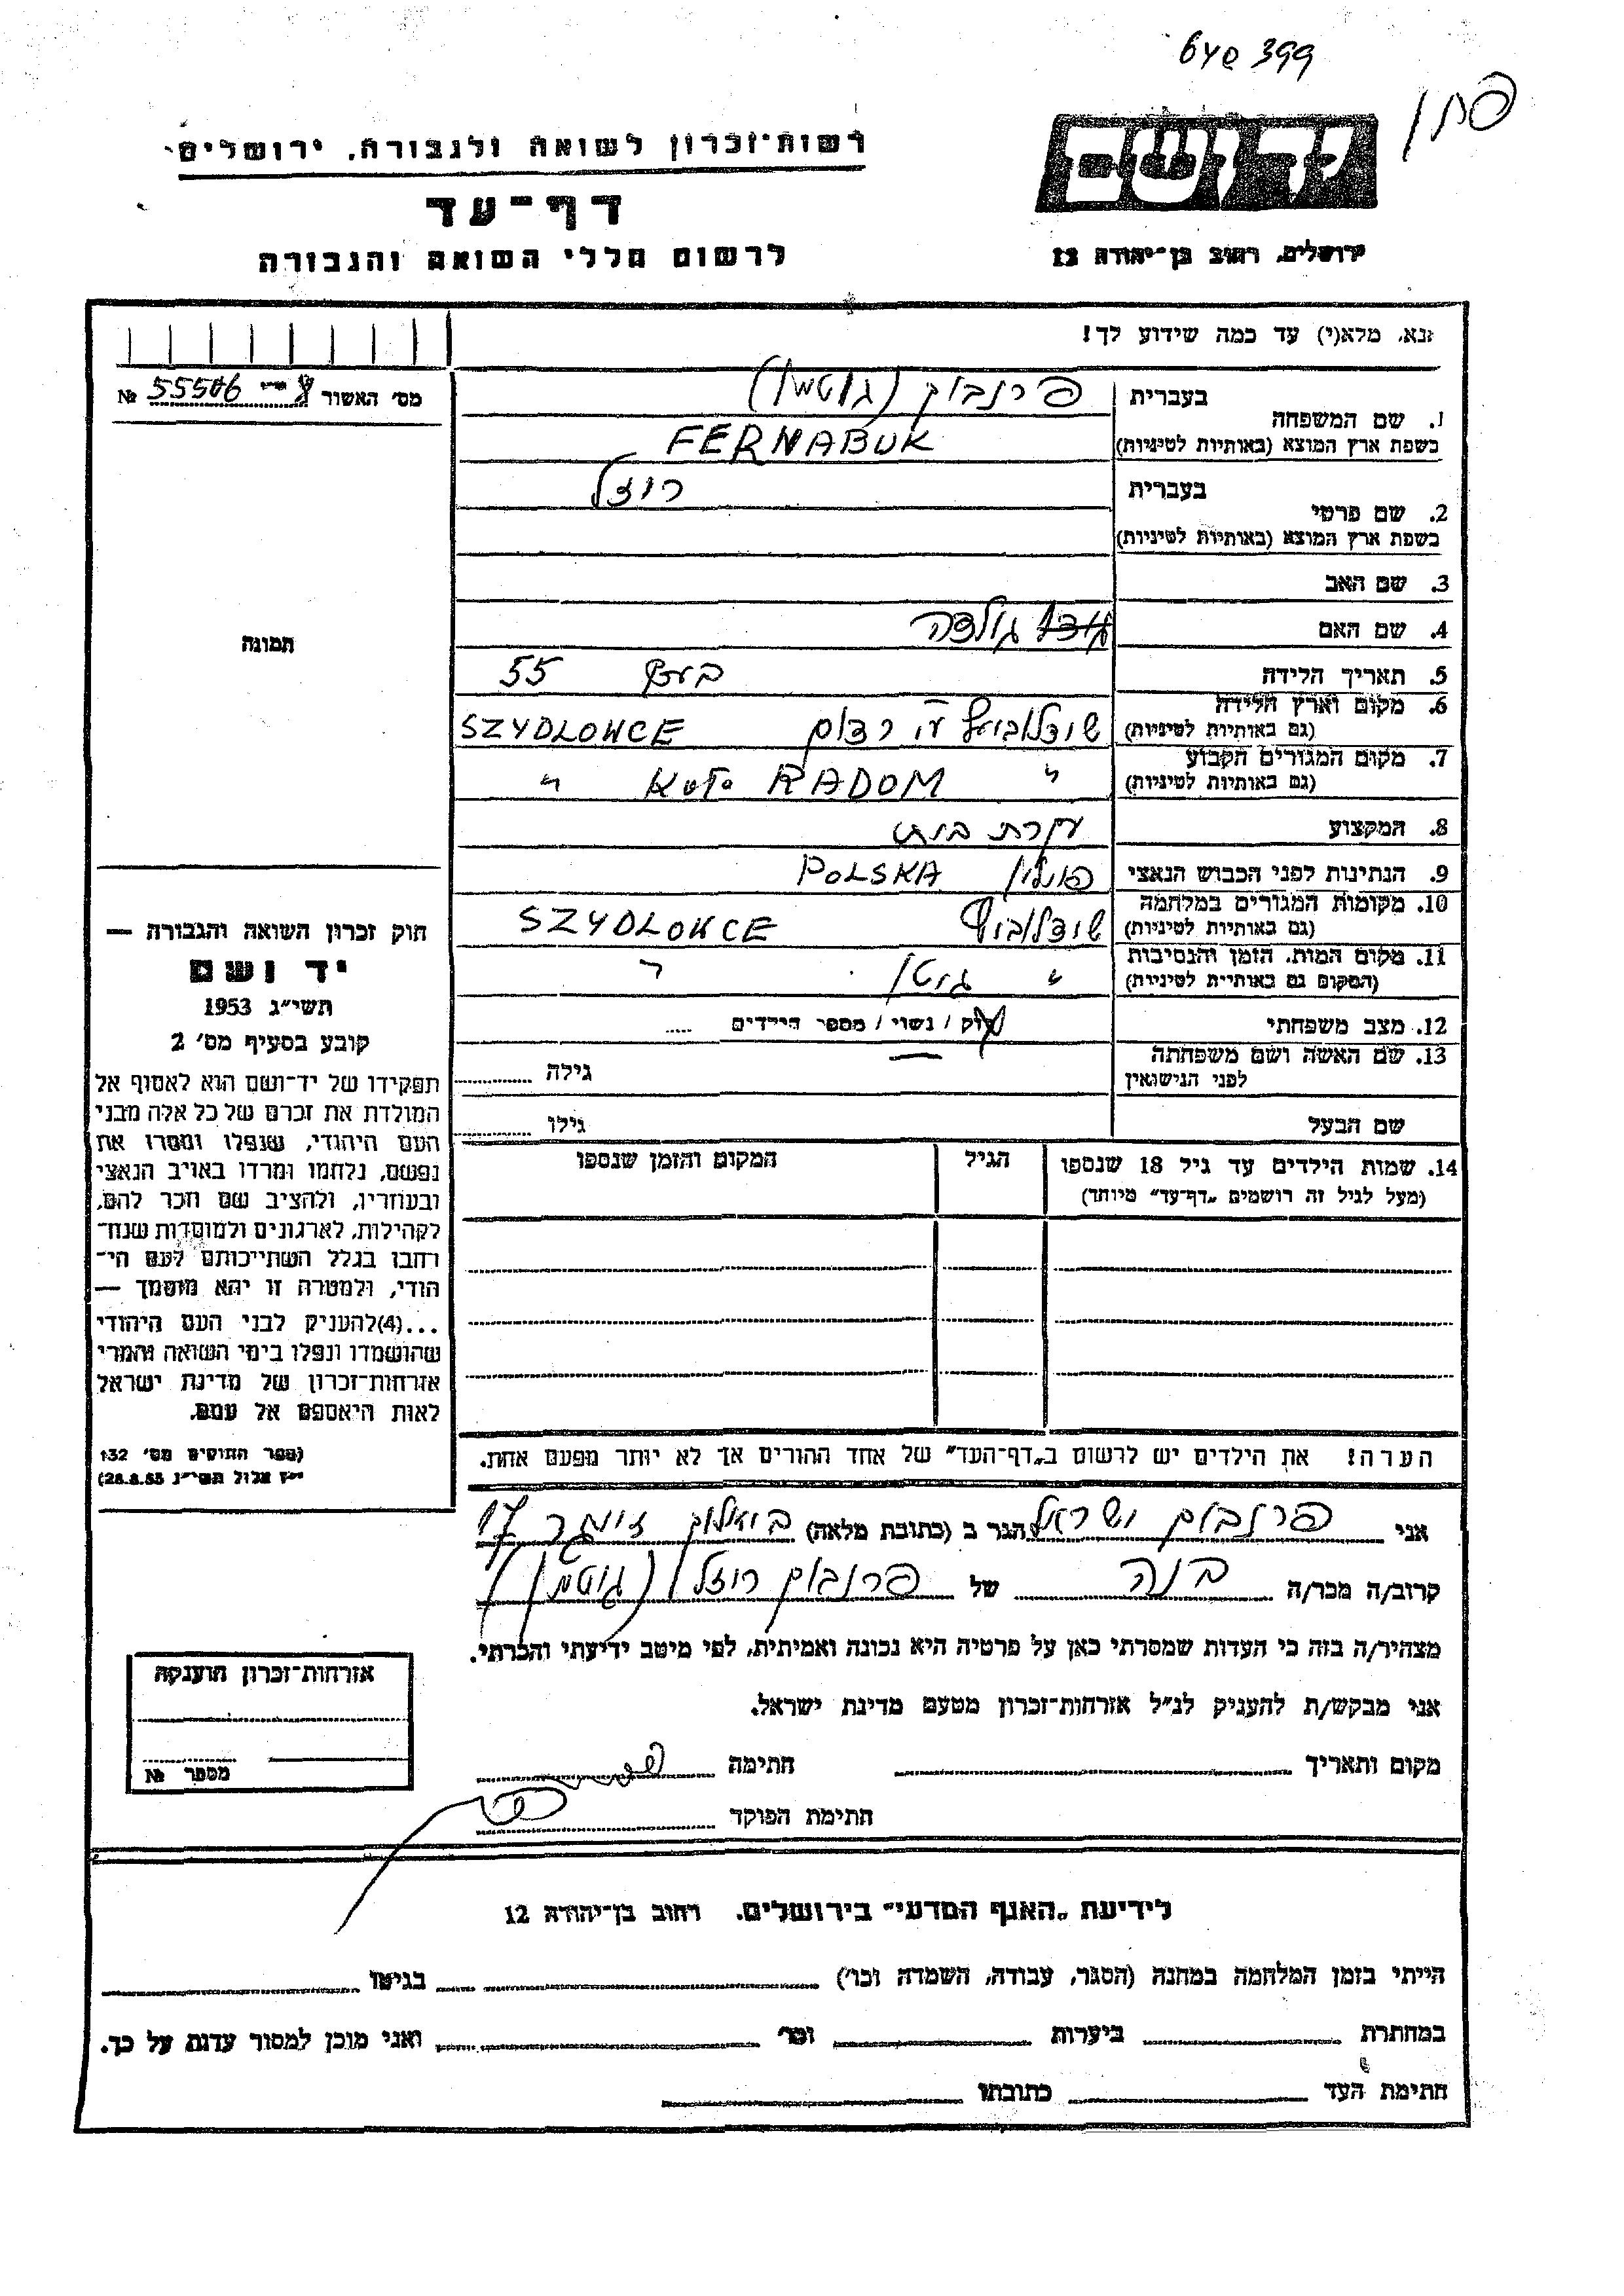 399
רשות־זכרון לשואה ולגבורה, ירושלים
דף־עד
לרשום חללי השואה והגבורה
יד ושם
ירושלים, רחוב בן־יהודה 12
נא, מלא(י) עד כמה שידוע לך!
מס׳ האשור № 55506
1. שם המשפחה
בעברית
פרנבוק (גוטמן)
בשפת ארץ המוצא (באותיות לטיניות)
FERNABUK
2. שם פרטי
בעברית
רוזל
בשפת ארץ המוצא (באותיות לטיניות)
3. שם האב
4. שם האם
גולדה
תמונה
5. תאריך הלידה
55
6. מקום וארץ הלידה
(גם באותיות לטיניות)
רדום SZYDLOWCE
7. מקום המגורים הקבוע
(גם באותיות לטיניות)
" RADOM KOŁO "
8. המקצוע
עקרת בית
9. הנתינות לפני הכבוש הנאצי
פולין POLSKA
10. מקומות המגורים במלחמה
(גם באותיות לטיניות)
SZYDLOWCE
11. מקום המות, הזמן והנסיבות
(המקום גם באותיות לטיניות)
"
12. מצב משפחתי
רוק / נשוי / מספר הילדים .....
13. שם האשה ושם משפחתה
לפני הנישואין
גילה
שם הבעל
גילו
14. שמות הילדים עד גיל 18 שנספו
(מעל לגיל זה רושמים „דף־עד״ מיוחד)
הגיל
המקום והזמן שנספו
חוק זכרון השואה והגבורה —
יד ושם
תשי״ג 1953
קובע בסעיף מס׳ 2
תפקידו של יד־ושם הוא לאסוף אל
המולדת את זכרם של כל אלה מבני
העם היהודי, שנפלו ומסרו את
נפשם, נלחמו ומרדו באויב הנאצי
ובעוזריו, ולהציב שם וזכר להם,
לקהילות, לארגונים ולמוסדות שנח־
רבו בגלל השתייכותם לעם הי־
הודי, ולמטרה זו יהא מוסמך —
...(4)להעניק לבני העם היהודי
שהושמדו ונפלו בימי השואה והמרי
אזרחות־זכרון של מדינת ישראל
לאות היאספם אל עמם.
(ספר החוקים מס׳ 132
י״ז אלול תשי״ג 28.8.53)
הערה! את הילדים יש לרשום ב„דף־העד״ של אחד ההורים אך לא יותר מפעם אחת.
אני פרנבוק ישראל הגר ב (כתובת מלאה) 17
קרוב/ה מכר/ה בנה של פרנבוק רוזל (גוטמן)
מצהיר/ה בזה כי העדות שמסרתי כאן על פרטיה היא נכונה ואמיתית, לפי מיטב ידיעתי והכרתי.
אני מבקש/ת להעניק לנ״ל אזרחות־זכרון מטעם מדינת ישראל.
מקום ותאריך
חתימה
חתימת הפוקד
אזרחות־זכרון הוענקה
מספר №
לידיעת „האגף המדעי״ בירושלים, רחוב בן־יהודה 12
הייתי בזמן המלחמה במחנה (הסגר, עבודה, השמדה וכו׳) בגיטו
במחתרת ביערות וכו׳ ואני מוכן למסור עדות על כך.
חתימת העד כתובתו